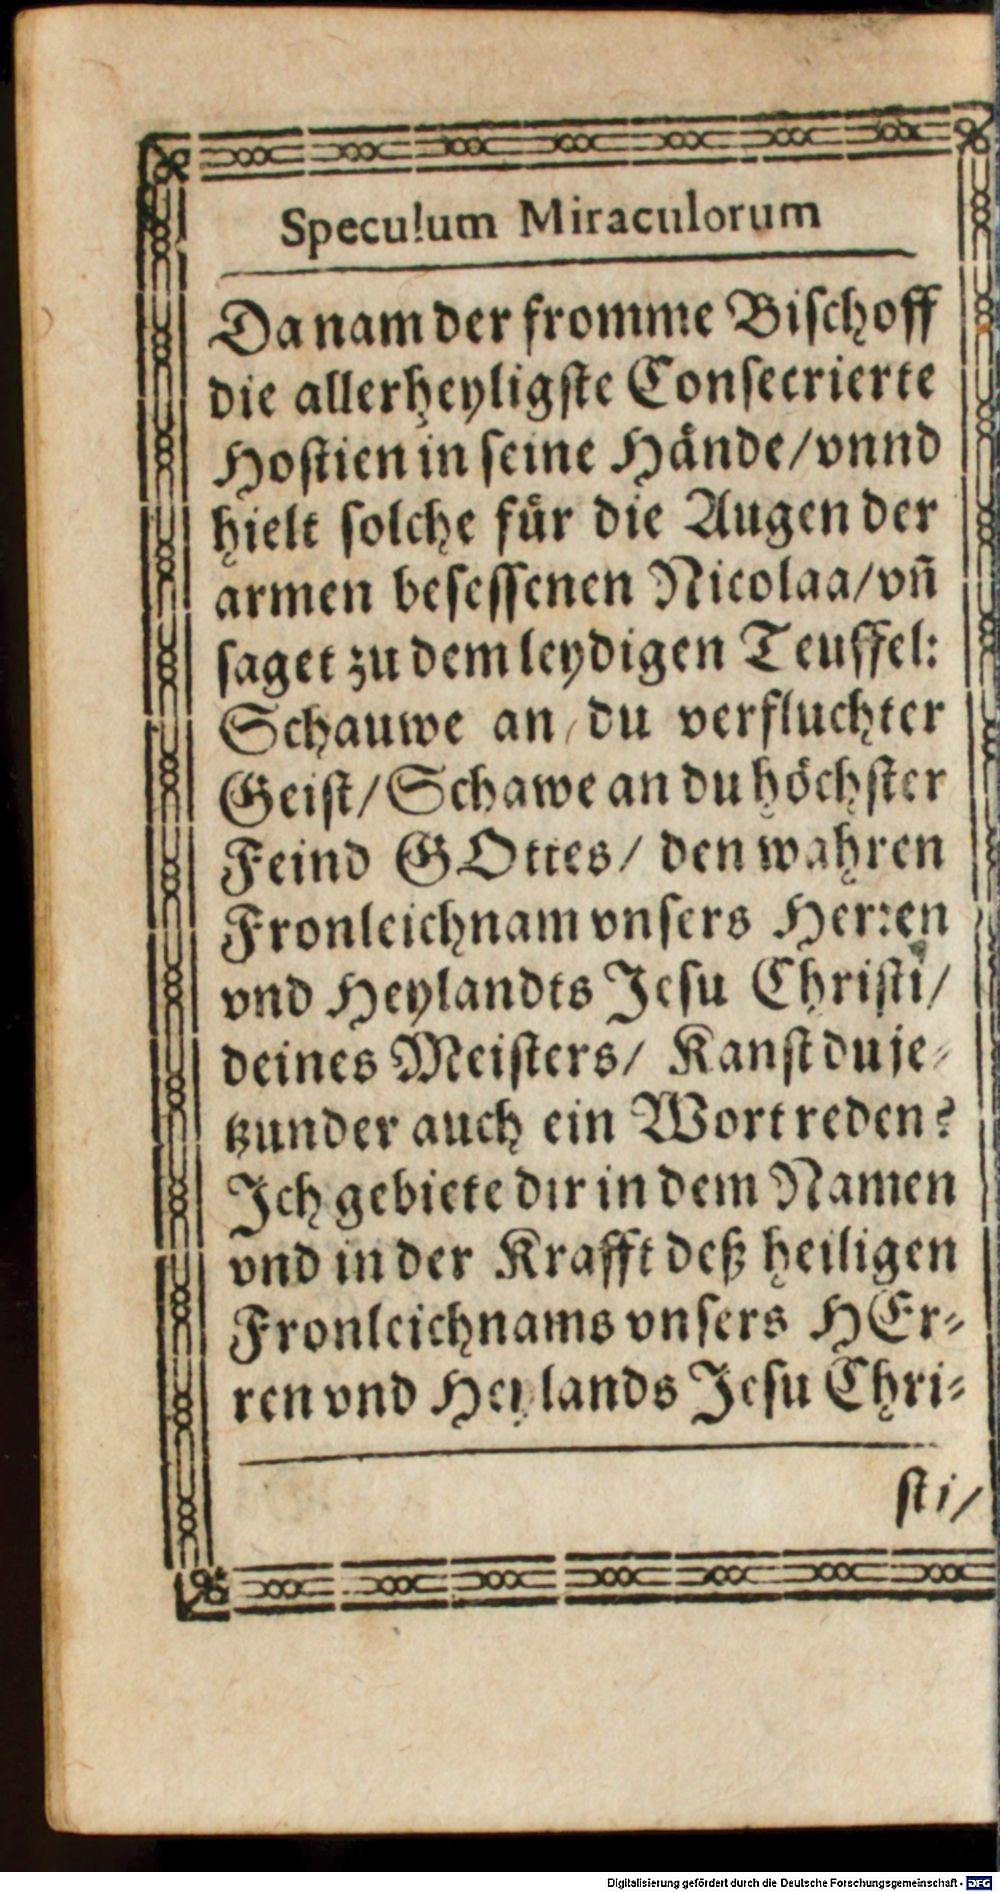 Speculum Miraculorum
Da nam der fromme Bischoff
die allerheyligste Consecrierte
Hostien in seine Hände/vnnd
hielt solche für die Augen der
armen besessenen Nicolaa/vñ
saget zu dem leydigen Teuffel:
Schauwe an/du verfluchter
Geist/Schawe an du höchster
Feind GOttes/ den wahren
Fronleichnam vnsers Herren
vnd Heylandts Jesu Christi/
deines Meisters/ Kanst du je-
tzunder auch ein Wort reden?
Ich gebiete dir in dem Namen
vnd in der Krafft deß heiligen
Fronleichnams vnsers HEr-
ren vnd Heylands Jesu Chri-
sti/
Digitalisierung gefördert durch die Deutsche Forschungsgemeinschaft - DFG